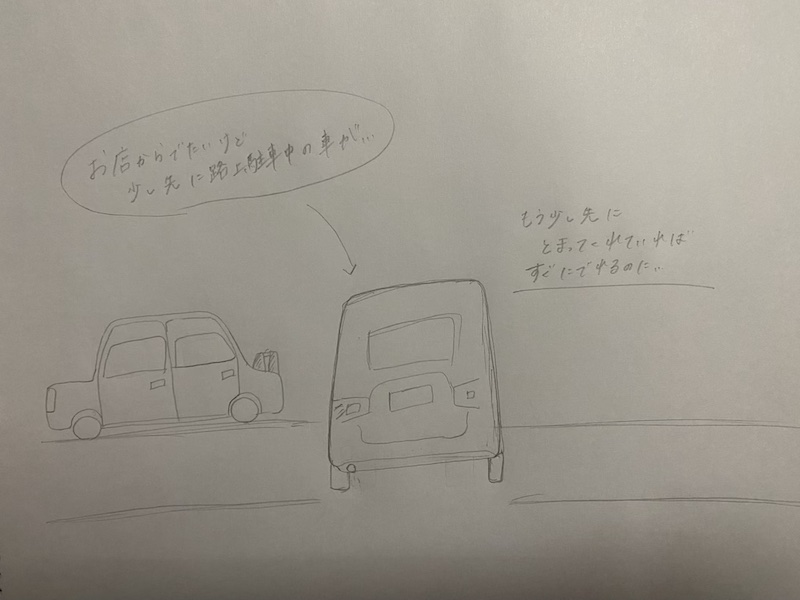 お店からでたいけど
少し先に路上駐車中の車が…
もう少し先に
とまってくれていれば
すぐにでれるのに..